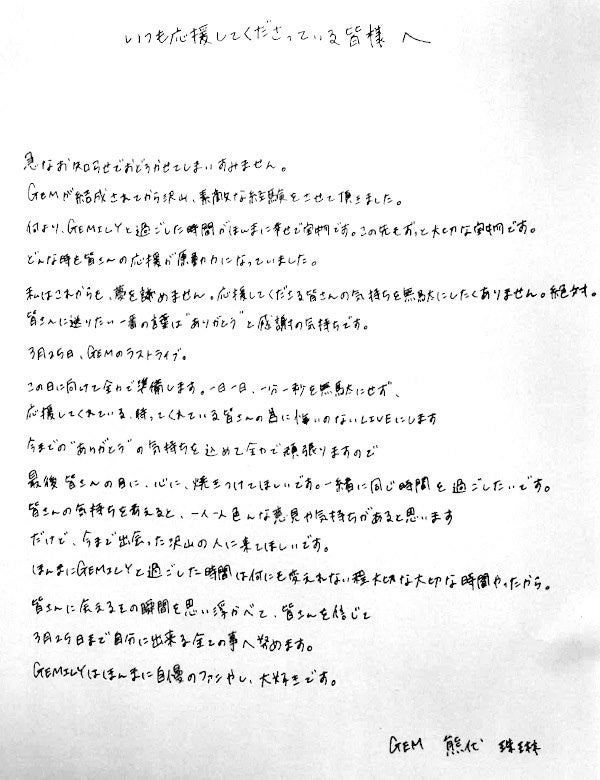 いつも応援してくださっている皆様へ
急なお知らせでおどろかせてしまいすみません。
GEMが結成されてから沢山、素敵な経験をさせて頂きました。
何より、GEMILYと過ごした時間がほんまに幸せで宝物です。この先もずっと大切な宝物です。
どんな時も皆さんの応援が原動力になっていました。
私はこれからも、夢を諦めません。応援してくださる皆さんの気持ちを無駄にしたくありません。絶対。
皆さんに送りたい一番の言葉は"ありがとう"と感謝の気持ちです。
3月25日、GEMのラストライブ。
この日に向けて全力で準備します。一日一日、一分一秒を無駄にせず、
応援してくれている、待ってくれている皆さんの為に悔いのないLIVEにします
今までの"ありがとう"の気持ちを込めて全力で頑張りますので
最後皆さんの目に、心に、焼きつけてほしいです。一緒に同じ時間を過ごしたいです。
皆さんの気持ちを考えると、一人一人色んな意見や気持ちがあると思います
だけど、今まで出会った沢山の人に来てほしいです。
ほんまにGEMILYと過ごした時間は何にも変えれない程大切な大切な時間やったから。
皆さんに会えるその瞬間を思い浮かべて、皆さんを信じて
3月25日まで自分に出来る全ての事へ努めます。
GEMILYはほんまに自慢のファンやし、大好きです。
GEM 熊代 珠琳